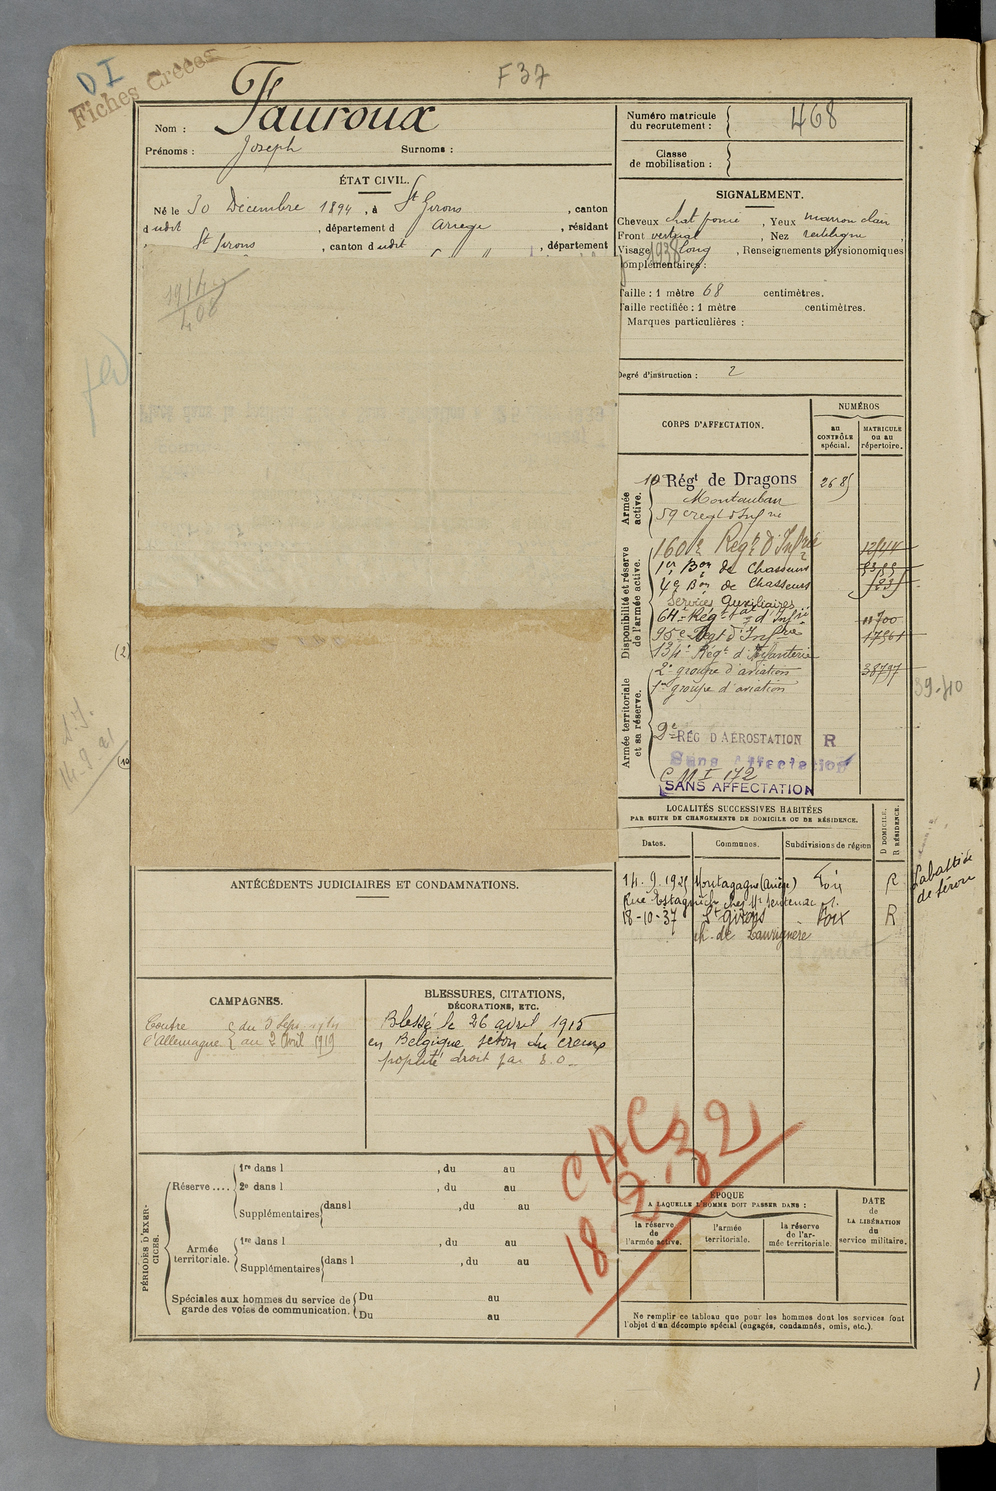 DI
Fiches Créées
F37
Nom : Fauroux
Prénoms : Joseph Surnoms :
ÉTAT CIVIL.
Né le 30 Décembre 1894, à St Girons, canton
dudit, département d Ariège, résidant
St Girons, canton dudit, département
1914
408
Numéro matricule
du recrutement : 468
Classe
de mobilisation :
SIGNALEMENT.
Cheveux chat foncé, Yeux marron clair
Front vertical, Nez rectiligne,
Visage long, Renseignements physionomiques
complémentaires :
1938
Taille : 1 mètre 68 centimètres.
Taille rectifiée : 1 mètre centimètres.
Marques particulières :
Degré d'instruction : 2
CORPS D'AFFECTATION.
NUMÉROS
au
CONTRÔLE
spécial.
MATRICULE
ou au
répertoire.
Armée
active.
10e Régt de Dragons 2685
Montauban
59e regt d'Infrie
Disponibilité et réserve
de l'armée active.
160e Regt d'Infrie
1er Bon de Chasseurs
4e Bon de Chasseurs
Services Auxiliaires
64e Regt d'Infie 11700
95e Regt d'Infrie 17561
134e Regt d'Infanterie
Armée territoriale
et sa réserve.
2e groupe d'aviation 38797
1er groupe d'aviation
2e RÉG D'AÉROSTATION R
Sans Affectation
C M I 172
SANS AFFECTATION
39-40
(2)
(10)
LOCALITÉS SUCCESSIVES HABITÉES
PAR SUITE DE CHANGEMENTS DE DOMICILE OU DE RÉSIDENCE.
D DOMICILE.
R RÉSIDENCE.
Dates. Communes. Subdivisions de région
14.9.1925 Montagagne (Ariège) Foix R
Labastide
de Sérou
18-10-37 St Girons Foix R
ANTÉCÉDENTS JUDICIAIRES ET CONDAMNATIONS.
CAMPAGNES.
Contre du 3 Sept 1914
l'Allemagne au 2 Avril 1919
BLESSURES, CITATIONS,
DÉCORATIONS, ETC.
Blessé le 26 avril 1915
en Belgique séton du creux
poplité droit par E.O.
CAC
18 2 32
PÉRIODES D'EXER-
CICES.
Réserve ....
1re dans l , du au
2e dans l , du au
Supplémentaires dans l , du au
Armée
territoriale.
1re dans l , du au
Supplémentaires dans l , du au
Spéciales aux hommes du service de
garde des voies de communication.
Du au
Du au
ÉPOQUE
A LAQUELLE L'HOMME DOIT PASSER DANS :
la réserve
de
l'armée active.
l'armée
territoriale.
la réserve
de l'ar-
mée territoriale.
DATE
de
LA LIBÉRATION
du
service militaire.
Ne remplir ce tableau que pour les hommes dont les services font
l'objet d'un décompte spécial (engagés, condamnés, omis, etc.).